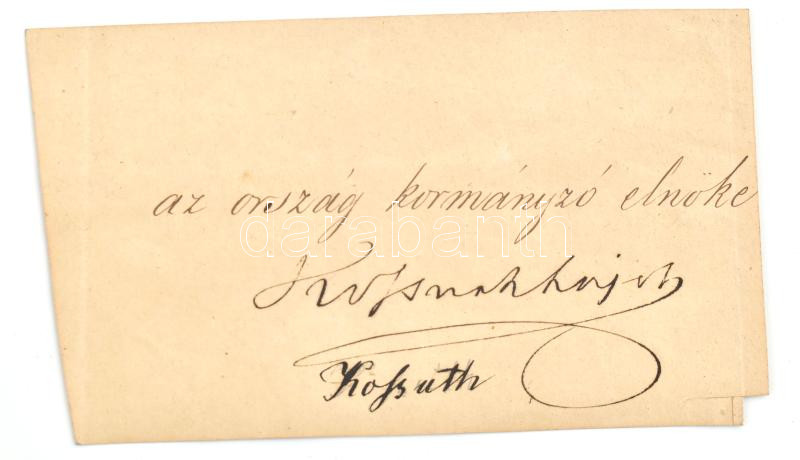 az ország kormányzó elnöke
darabanth
Kossuth Lajos
Kossuth